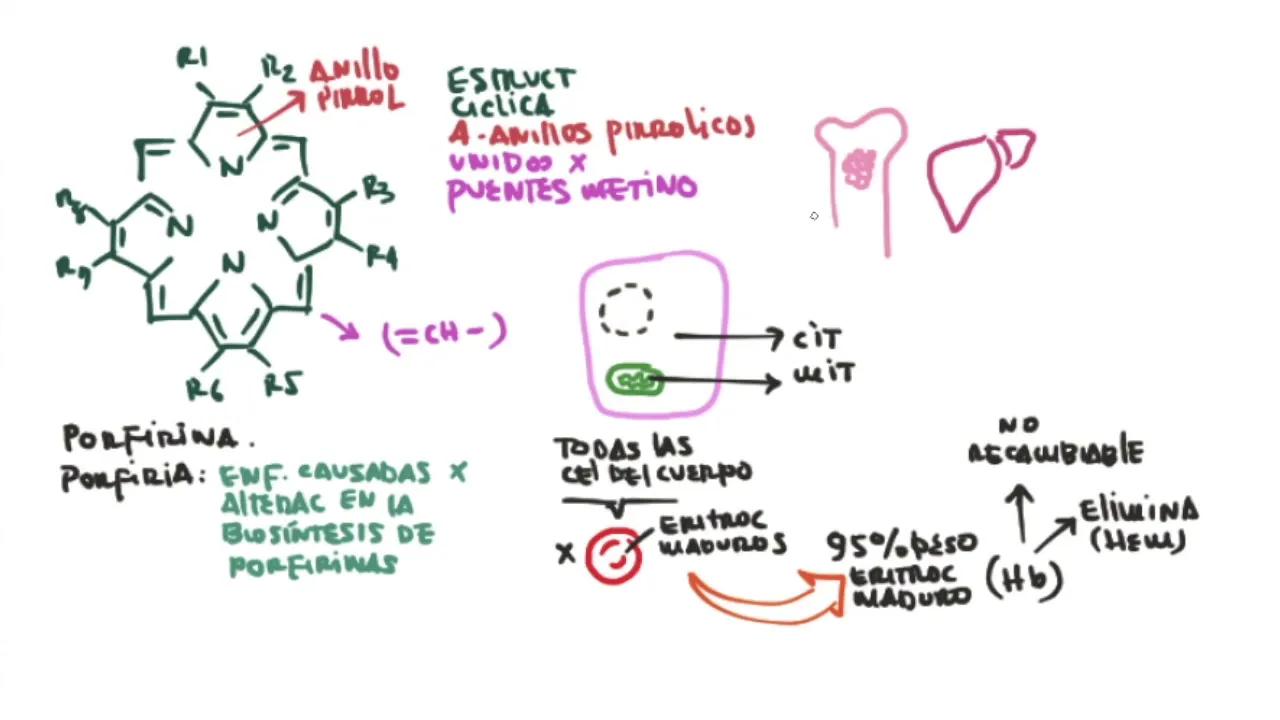 R1
R2
ANILLO
PIRROL
N
R3
R4
N
N
R8
R9
N
R6
R5
(=CH-)
ESTRUCT
CICLICA
4-ANILLOS PIRROLICOS
UNIDOS X
PUENTES METINO
CIT
MIT
PORFIRINA.
PORFIRIA: ENF. CAUSADAS X
ALTERAC EN LA
BIOSÍNTESIS DE
PORFIRINAS
TODAS LAS
CEL DEL CUERPO
X
ERITROC
MADUROS
95% PESO
ERITROC
MADURO
(Hb)
NO
RECAMBIABLE
ELIMINA
(HEM)